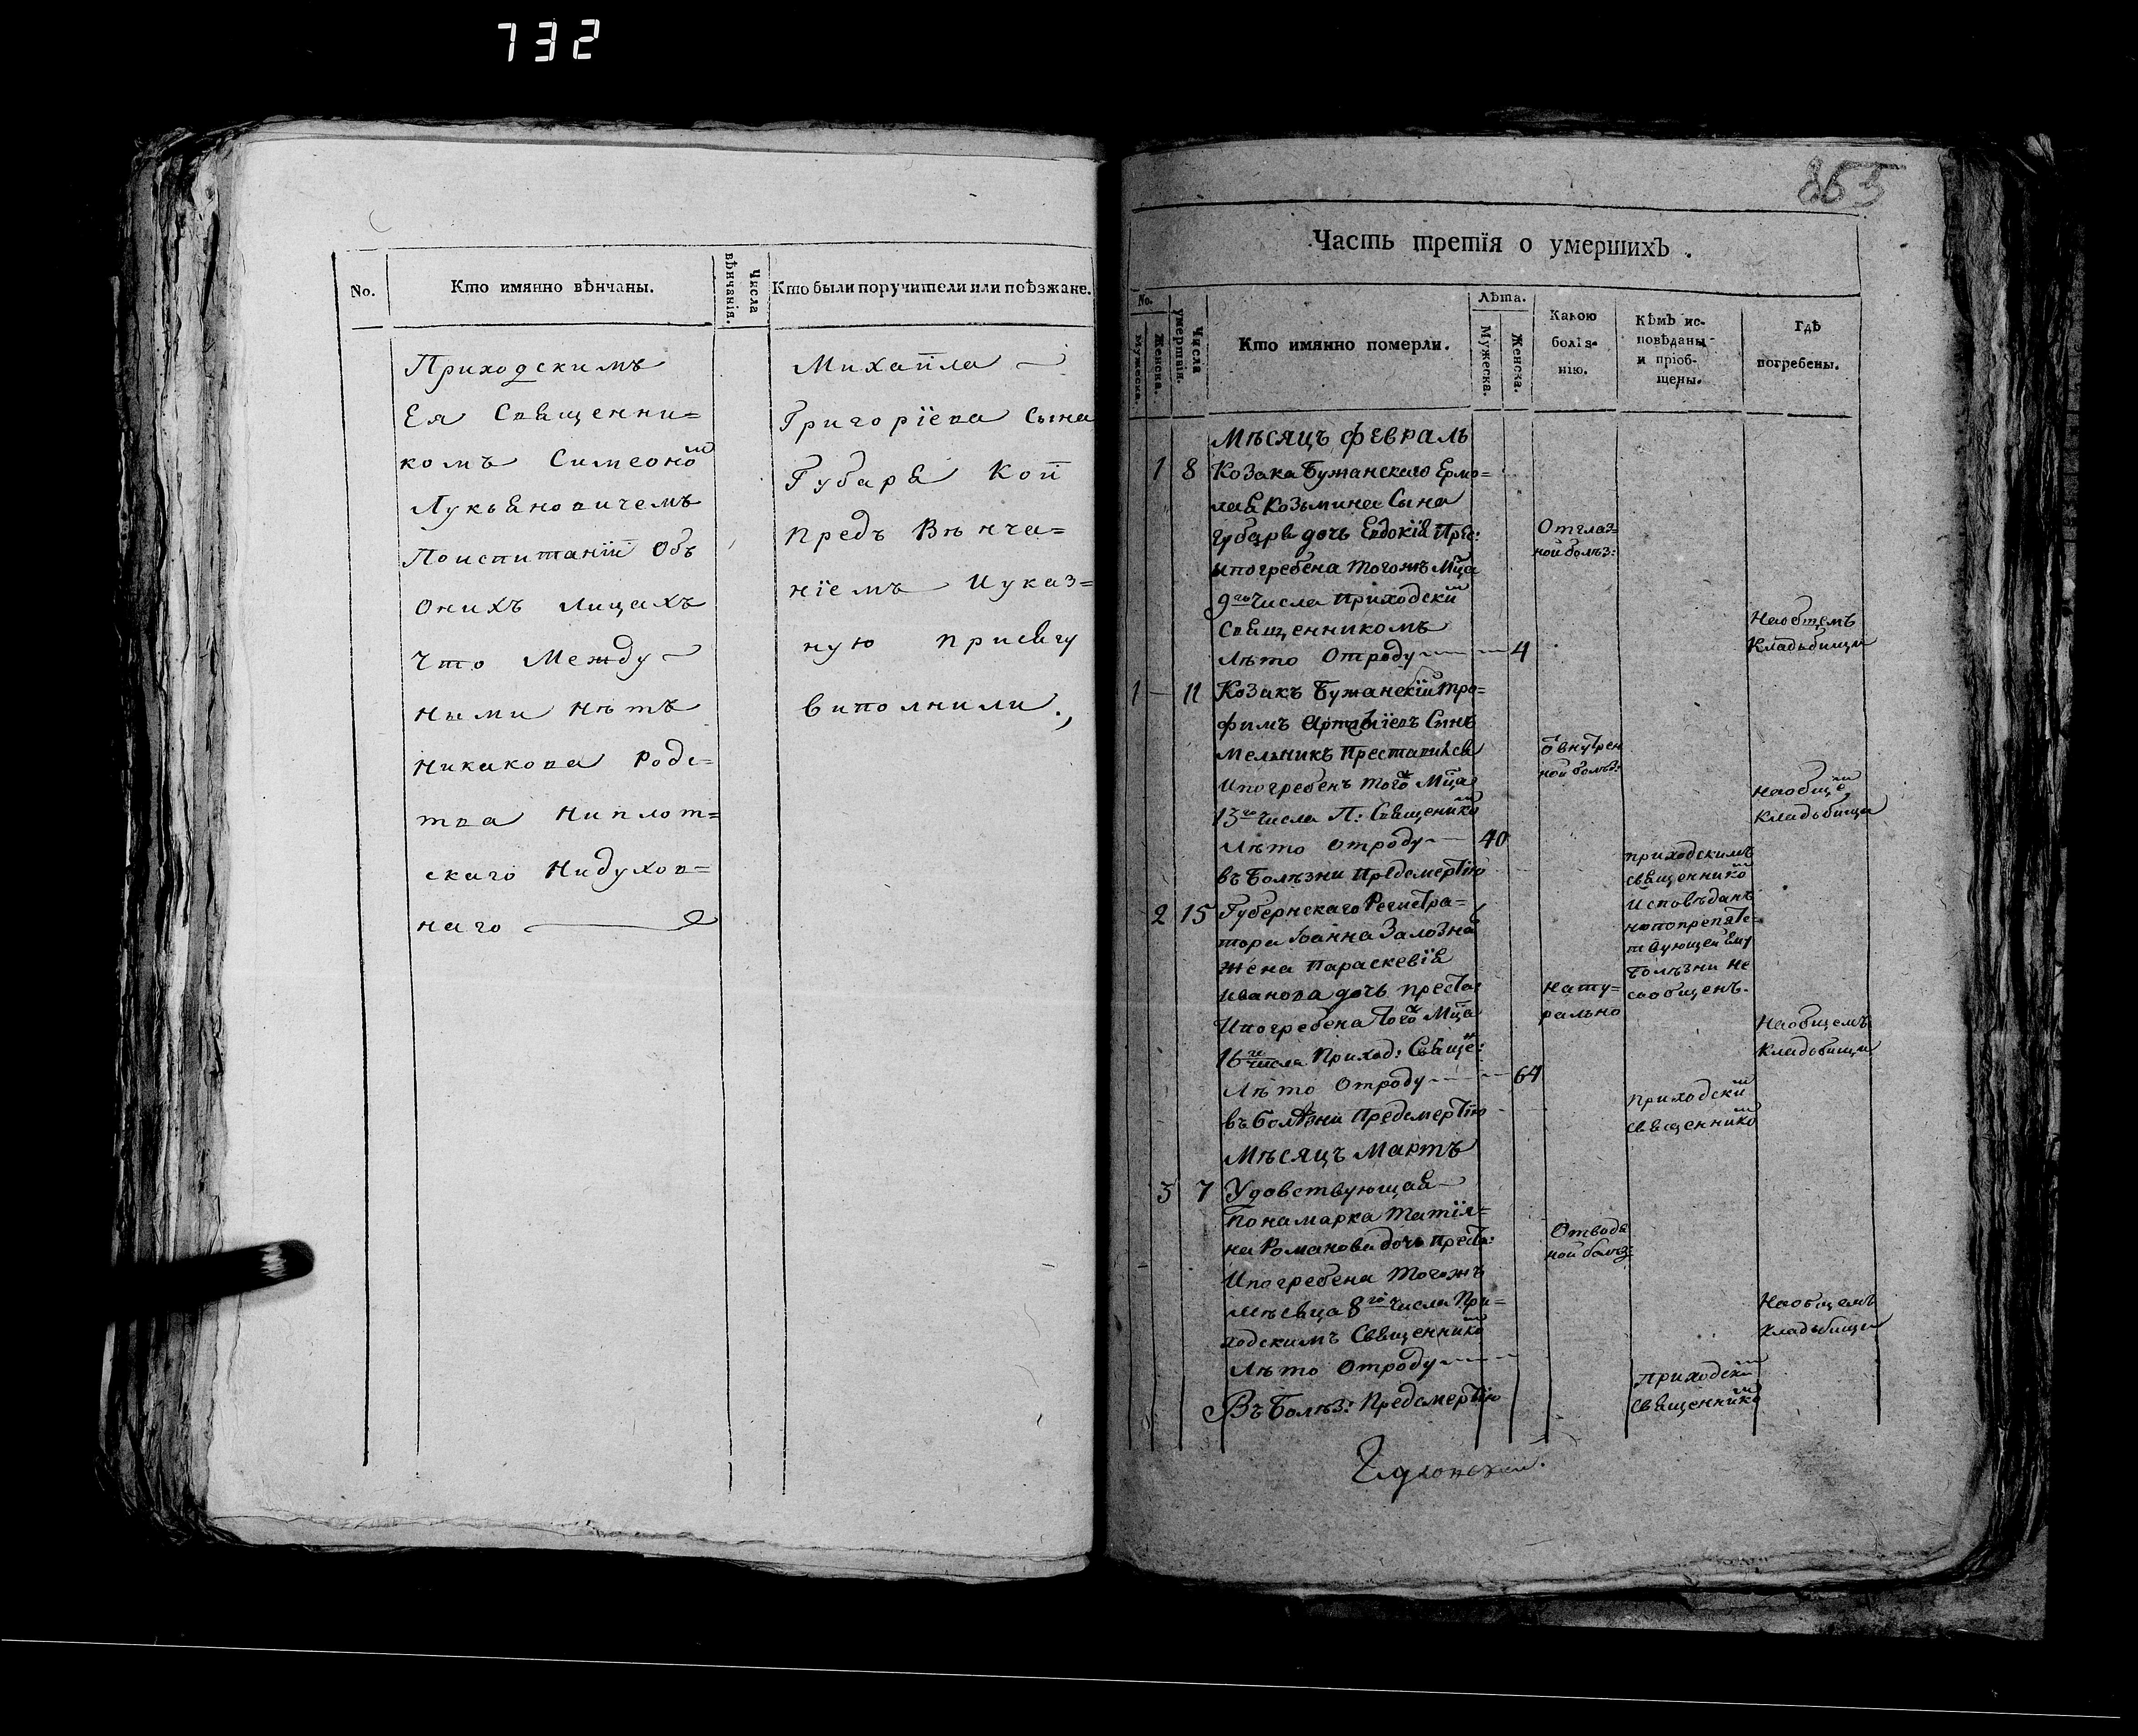 732
No.
Кто имянно вѣнчаны.
Числа вѣнчанія.
Кто были поручители или поѣзжане.
Приходскимъ
Ея Священни=
комъ Симеоном
Лукьяновичемъ
Поиспитаніи Объ
Онихъ лицахъ
Что Между
Ными нѣтъ
Никакова Родс=
тва Ниплот=
скаго Нидухов=
наго
Михаила
Григоріева Сына
Губаря Коп
предъ Вѣнча=
ніемъ Иуказ=
ную присягу
виполнили.
865
Часть третія о умершихъ.
No.
Мужеска.
Женска.
Числа умертвія.
Кто имянно померли.
Лѣта.
Мужеска.
Женска.
Какою
болѣз-
нію.
Кѣмъ ис-
повѣданы
и пріоб-
щены.
Гдѣ
погребены.
Мѣсяцъ февраль
1 8 Козака Бужанскаго Ермо=
лая Козьмина Сына
Губаря дочь Евдокія Прес:
ипогребена тогожъ Мца
9го Числа Приходским
Священникомъ
Лѣто Отроду 4
Отглаз=
ной болѣз:
Наобщемъ
Кладьбищи
1 11 Козакъ Бужанскій Тро=
фимъ Артеміевъ Сынъ
мельникъ Преставился
Ипогребенъ того Мца
13го Числа П: Священнико
Лѣто отроду 40
въ Болѣзни Предсмертію
ѿ внутрен
ной болѣз:
Наобще
Кладьбищи
приходскимъ
священнико
Исповѣданъ
нопопрепятс=
твующей Ему
Болѣзни не
сообщенъ.
2 15 Губернскаго Регистра=
тора Іоанна Залозна
жена Параскевія
иванова дочь преста
Ипогребена того Мца
16го числа Приход: Свяще:
Лѣто Отроду 64
въ болѣзни Предсмертію
нату=
рально
Наобщемъ
Кладьбищи
Приходски
священнико
Мѣсяцъ Мартъ
3 7 Удовствующая
Понамарка Татія=
на Романова дочь прест:
Ипогребена Тогожъ
мѣсяца 8го Числа При=
ходскимъ Священнико
Лѣто Отроду
Въ Болѣз: Предсмертію
Отводя
ной болѣз:
Наобщемъ
Кладьбищи
Приходски
Священнико